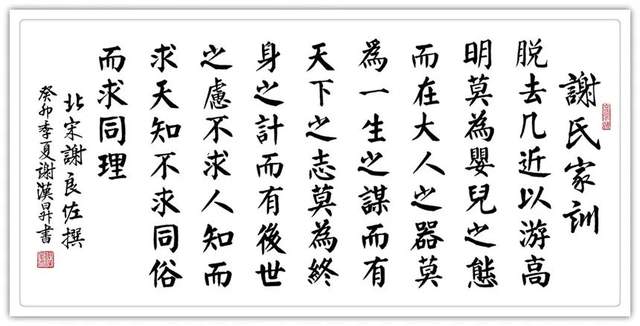 謝氏家訓
脱去几近以游高
明莫為嬰兒之態
而在大人之器莫
為一生之謀而有
天下之志莫為終
身之計而有後世
之慮不求人知而
求天知不求同俗
而求同理
北宋謝良佐撰
癸卯季夏谢漢昇書